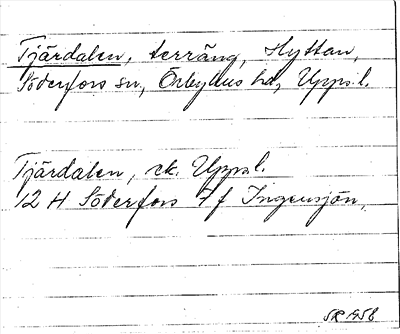 Tjärdalen, terräng, Hyttan,
Söderfors sn, Örbyhus hd, Upps.l.
Tjärdalen, ek. Upps.l.
12 H Söderfors 7 f Ingensjön,
SR 1958